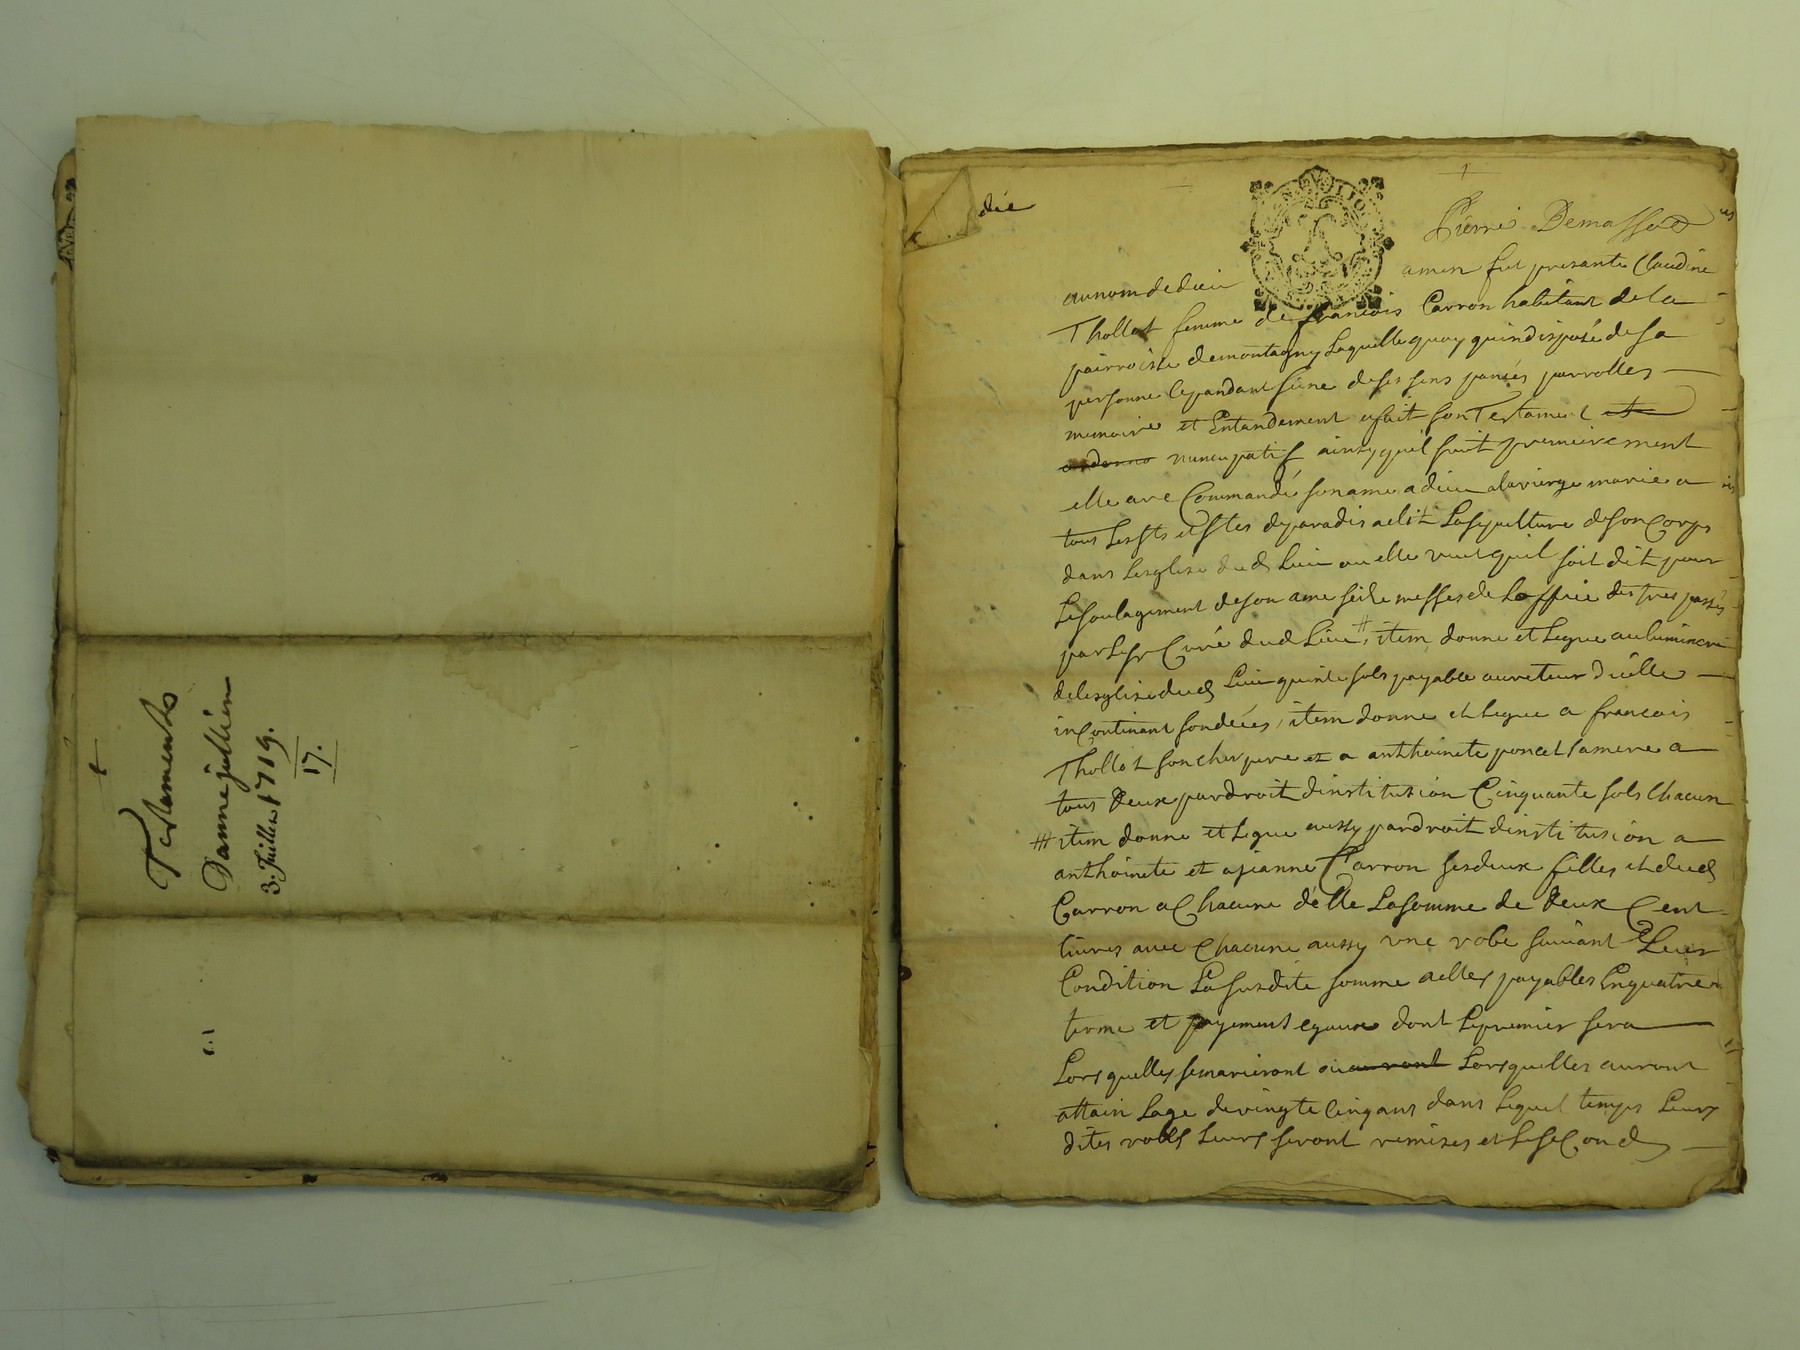 Testaments
Danne jullien
3. Juillet 1719.
17.
die
Pierre Demasso
au nom de dieu amen fut presante Claudine
Thollot femme de francois Carron habitant de la
pairroisse de montagny laquelle quoy quindisposé de sa
personne cepandant sene de ses sens parolles
memoire et Entandement a fait son Testament et
ordonne nuncupatif ainsy quil suit premierement
elle a recommandé son ame a dieu a la vierge marie a
tous les sts et stes de paradis a elit la sepulture de son Corps
dans lesglise dud lieu ou elle veut quil soit dit pour
le soulagement de son ame seile messes de Loffice des trespassés
par le sr Curé dud lieu # item donne et legue au luminere
de lesglise dud lieu quinte sols payable au reteur dicelle
incontinant son decés, item donne et legue a francois
Thollot son cher pere et a anthoinete poncet sa mere a
tous deux par droit dinstitusion Cinquante sols chacun
# item donne et legue aussy par droit dinstitusion a
anthoinete et a jeanne Carron ses deux filles et dud
Carron a Chacune delle La somme de deux Cent
livres avec chacune aussy une robe suivant Leur
Condition La susdite somme a elles payables En quatre
terme et payement egaux dont le premier sera
Lors quelles se marieront ou auront Lors quelles auront
attain Lage de vingte cinq ans dans lequel temps Leurs
dites robes Leurs seront remises et le second